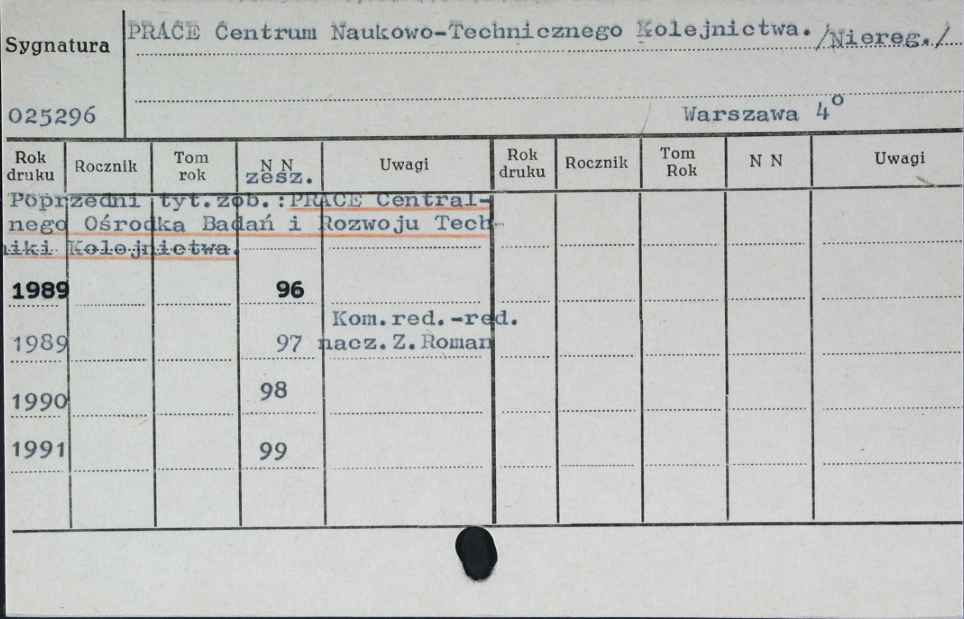 Sygnatura PRACE Centrum Naukowo-Technicznego Kolejnictwa. /Niereg./
025296 Warszawa 4°
Rok druku Rocznik Tom rok N N zesz. Uwagi Rok druku Rocznik Tom Rok N N Uwagi
Poprzedni tyt.zob.:PRACE Central-
nego Ośrodka Badań i Rozwoju Tech-
niki Kolejnictwa.
1989 96
Kom.red.-red.
1989 97 nacz.Z.Roman
1990 98
1991 99